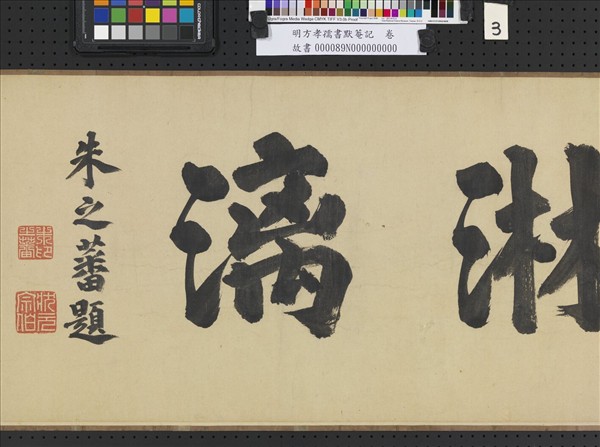 明方孝孺書默菴記 卷
故書 000089N000000000
3
淋漓
朱之蕃題